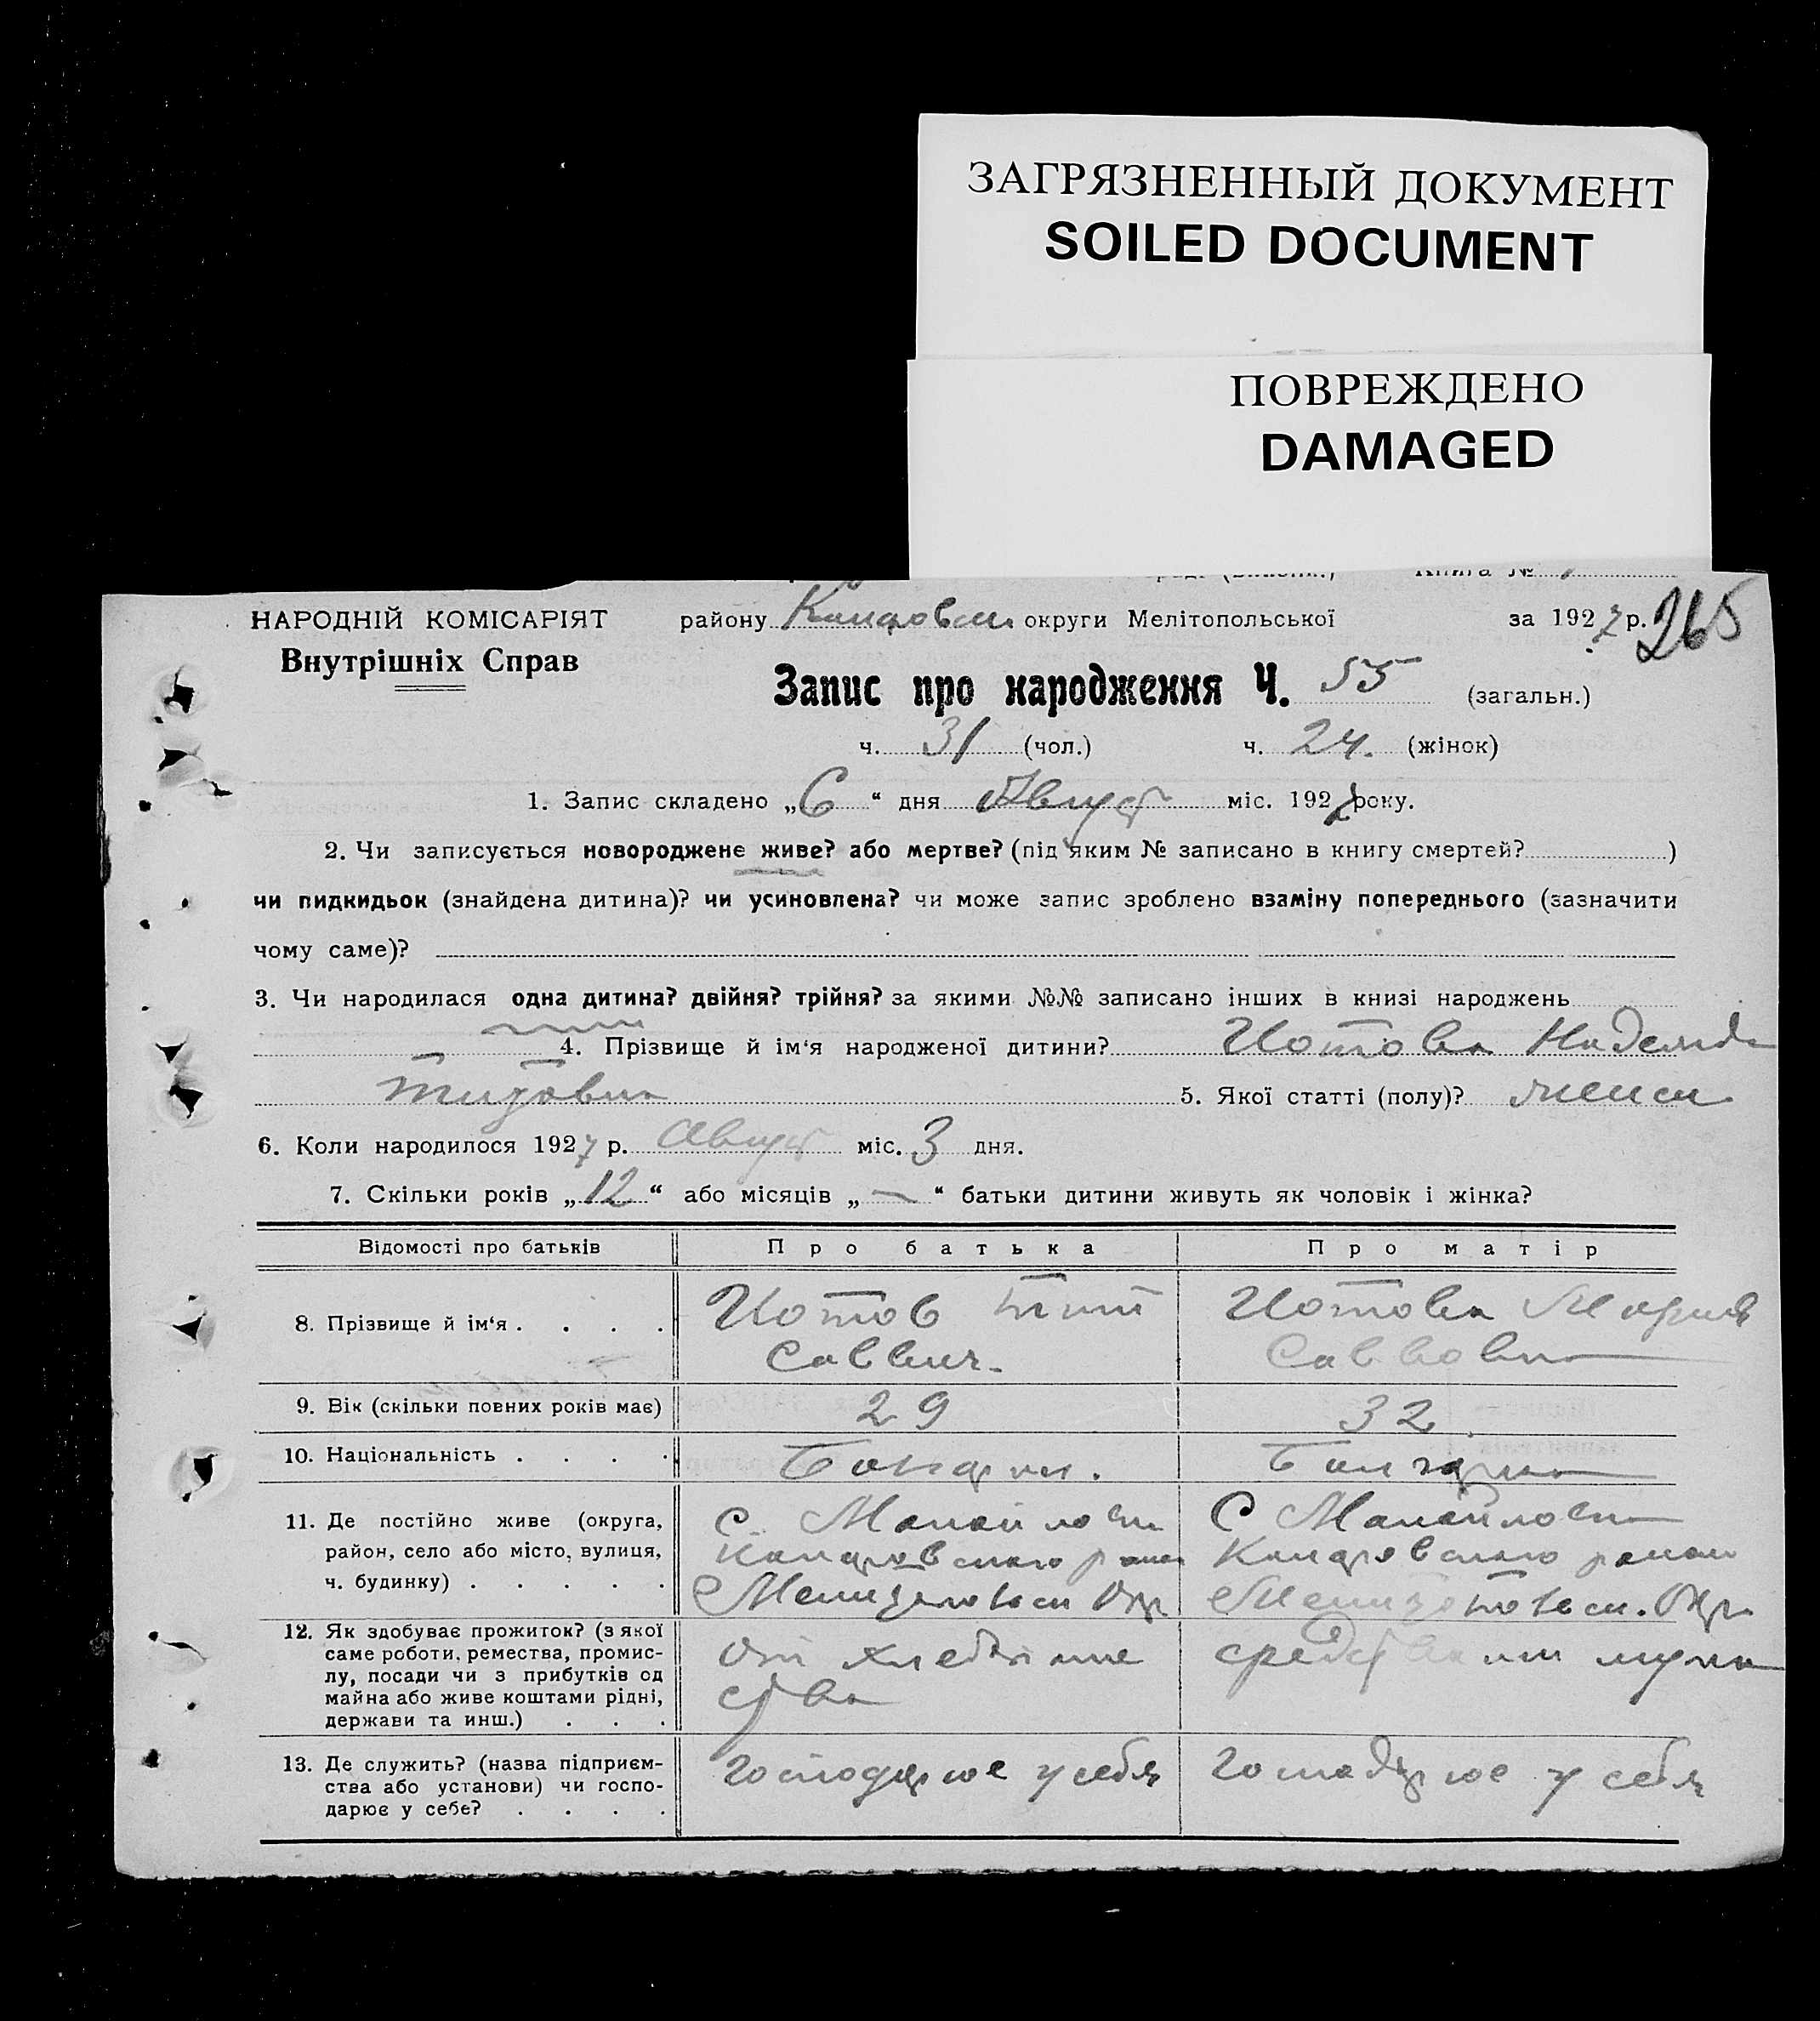 ЗАГРЯЗНЕННЫЙ ДОКУМЕНТ
SOILED DOCUMENT
ПОВРЕЖДЕНО
DAMAGED
Книга №
НАРОДНІЙ КОМІСАРІЯТ району округи Мелітопольської за 1927 р. 265
Внутрішніх Справ
Запис про народження Ч. 55 (загальн.)
ч. 31 (чол.) ч. 24. (жінок)
1. Запис складено „6“ дня Август міс. 1927 року.
2. Чи записується новороджене живе? або мертве? (під яким № записано в книгу смертей? )
чи пидкидьок (знайдена дитина)? чи усиновлена? чи може запис зроблено взаміну попереднього (зазначити
чому саме)?
3. Чи народилася одна дитина? двійня? трійня? за якими №№ записано інших в книзі народжень
4. Прізвище й ім‘я народженої дитини? Иотова Надежда
Титовна 5. Якої статті (полу)? женск
6. Коли народилося 1927 р. Август міс. 3 дня.
7. Скільки років „12“ або місяців „—“ батьки дитини живуть як чоловік і жінка?
Відомості про батьків Про батька Про матір
8. Прізвище й ім‘я . . . . Иотов Тит Иотова Мария
Саввич. Саввовна
9. Вік (скільки повних років має) 29 32
10. Національність . . . . Болгарка
11. Де постійно живе (округа, с. Манойловки С Манойловки
район, село або місто, вулиця, района района
ч. будинку) . . . . . Мелитопольск Окр Мелитопольск. Окр
12. Як здобуває прожиток? (з якої
саме роботи, ремества, промис- От хлебопаше средства от мужа
лу, посади чи з прибутків од ства
майна або живе коштами рідні,
держави та инш.) . . .
13. Де служить? (назва підприєм- господарює у себя господарює у себя
ства або установи) чи госпо-
дарює у себе? . . . .